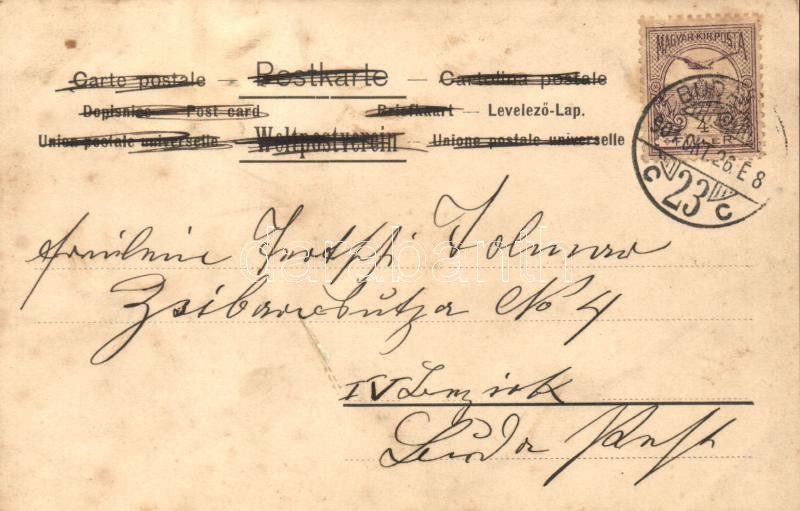 Carte postale – Postkarte – Cartolina postale
Dopisnice – Post card Briefkaart – Levelező-Lap.
Union postale universelle Weltpostverein Unione postale universelle
MAGYAR KIR. POSTA
BUDAPEST
4
907 OKT. 26. E 8
FILLÉR
C 23 C
darabanth
Fräulein
No 4
IV Bezirk
Buda Pest